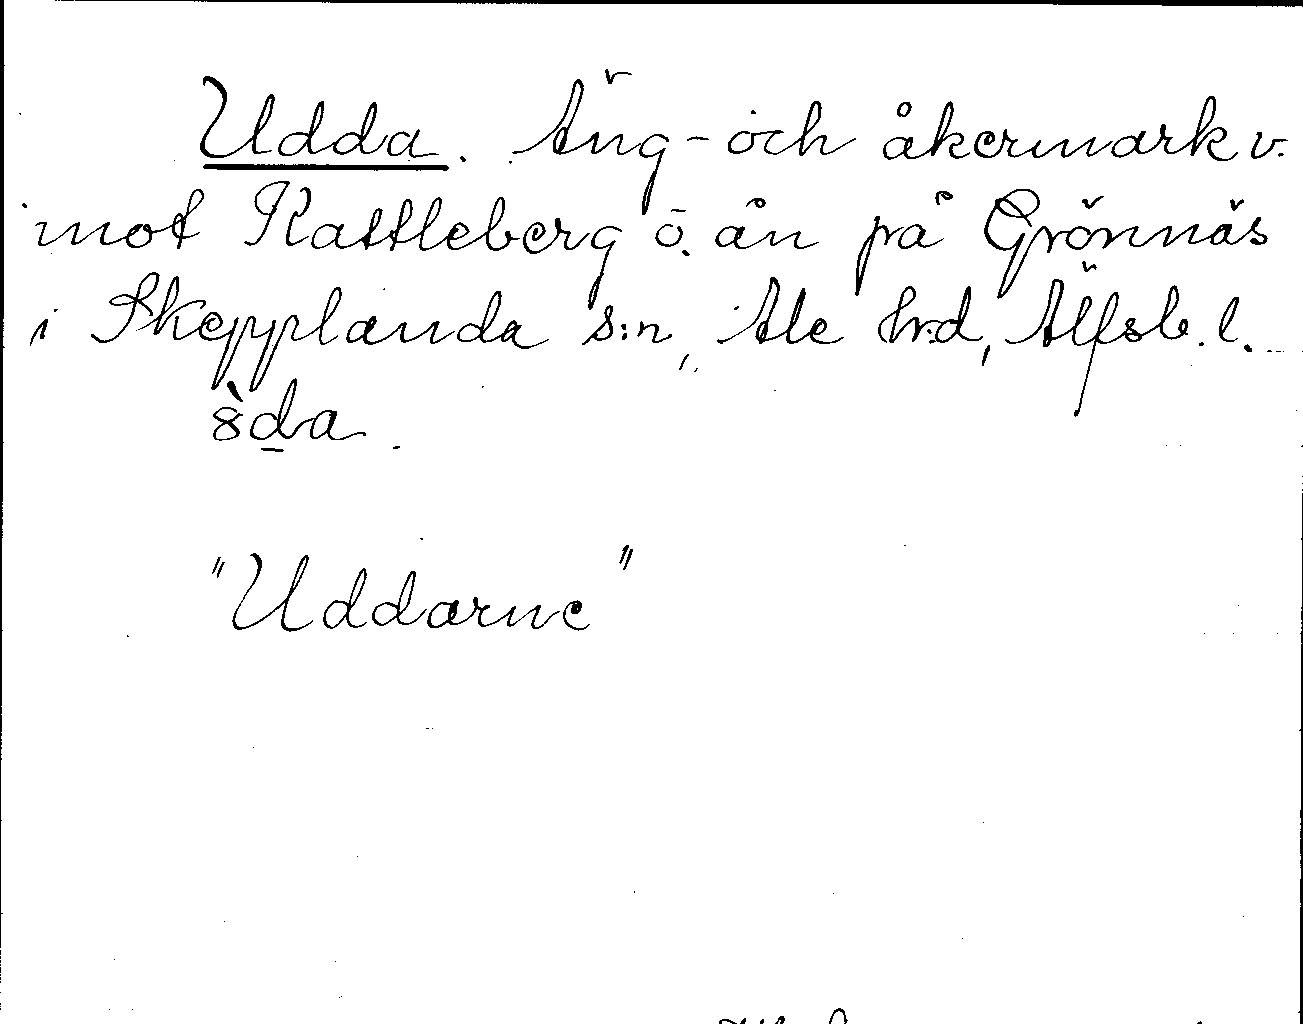 Udda. Äng- och åkermark v.
mot Kattleberg ö. ån på Grönnäs
i Skepplanda s:n, Ale hrd, Älfsb. l.
"Uddarne"